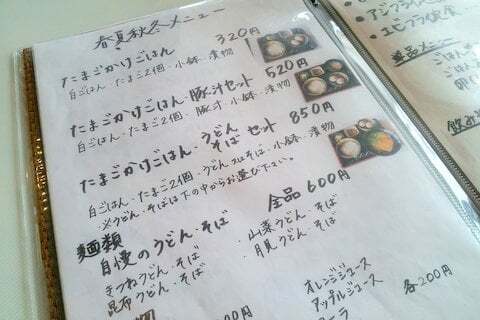 春夏秋冬メニュー
たまごかけごはん 320円
白ごはん・たまご2個・小鉢・漬物
たまごかけごはん・豚汁セット 520円
白ごはん・たまご2個・豚汁・小鉢・漬物
たまごかけごはん・うどん そば セット 850円
白ごはん・たまご2個・うどん又はそば・小鉢・漬物
※うどん・そばは下の中からお選び下さい。
麺類 全品600円
自慢のうどん・そば
・山菜うどん・そば
・きつねうどん・そば
・月見うどん・そば
・昆布うどん・そば
オレンジジュース
アップルジュース 各200円
コーラ
アジフライ定食
エビフライ定食
単品メニュー
ごはん